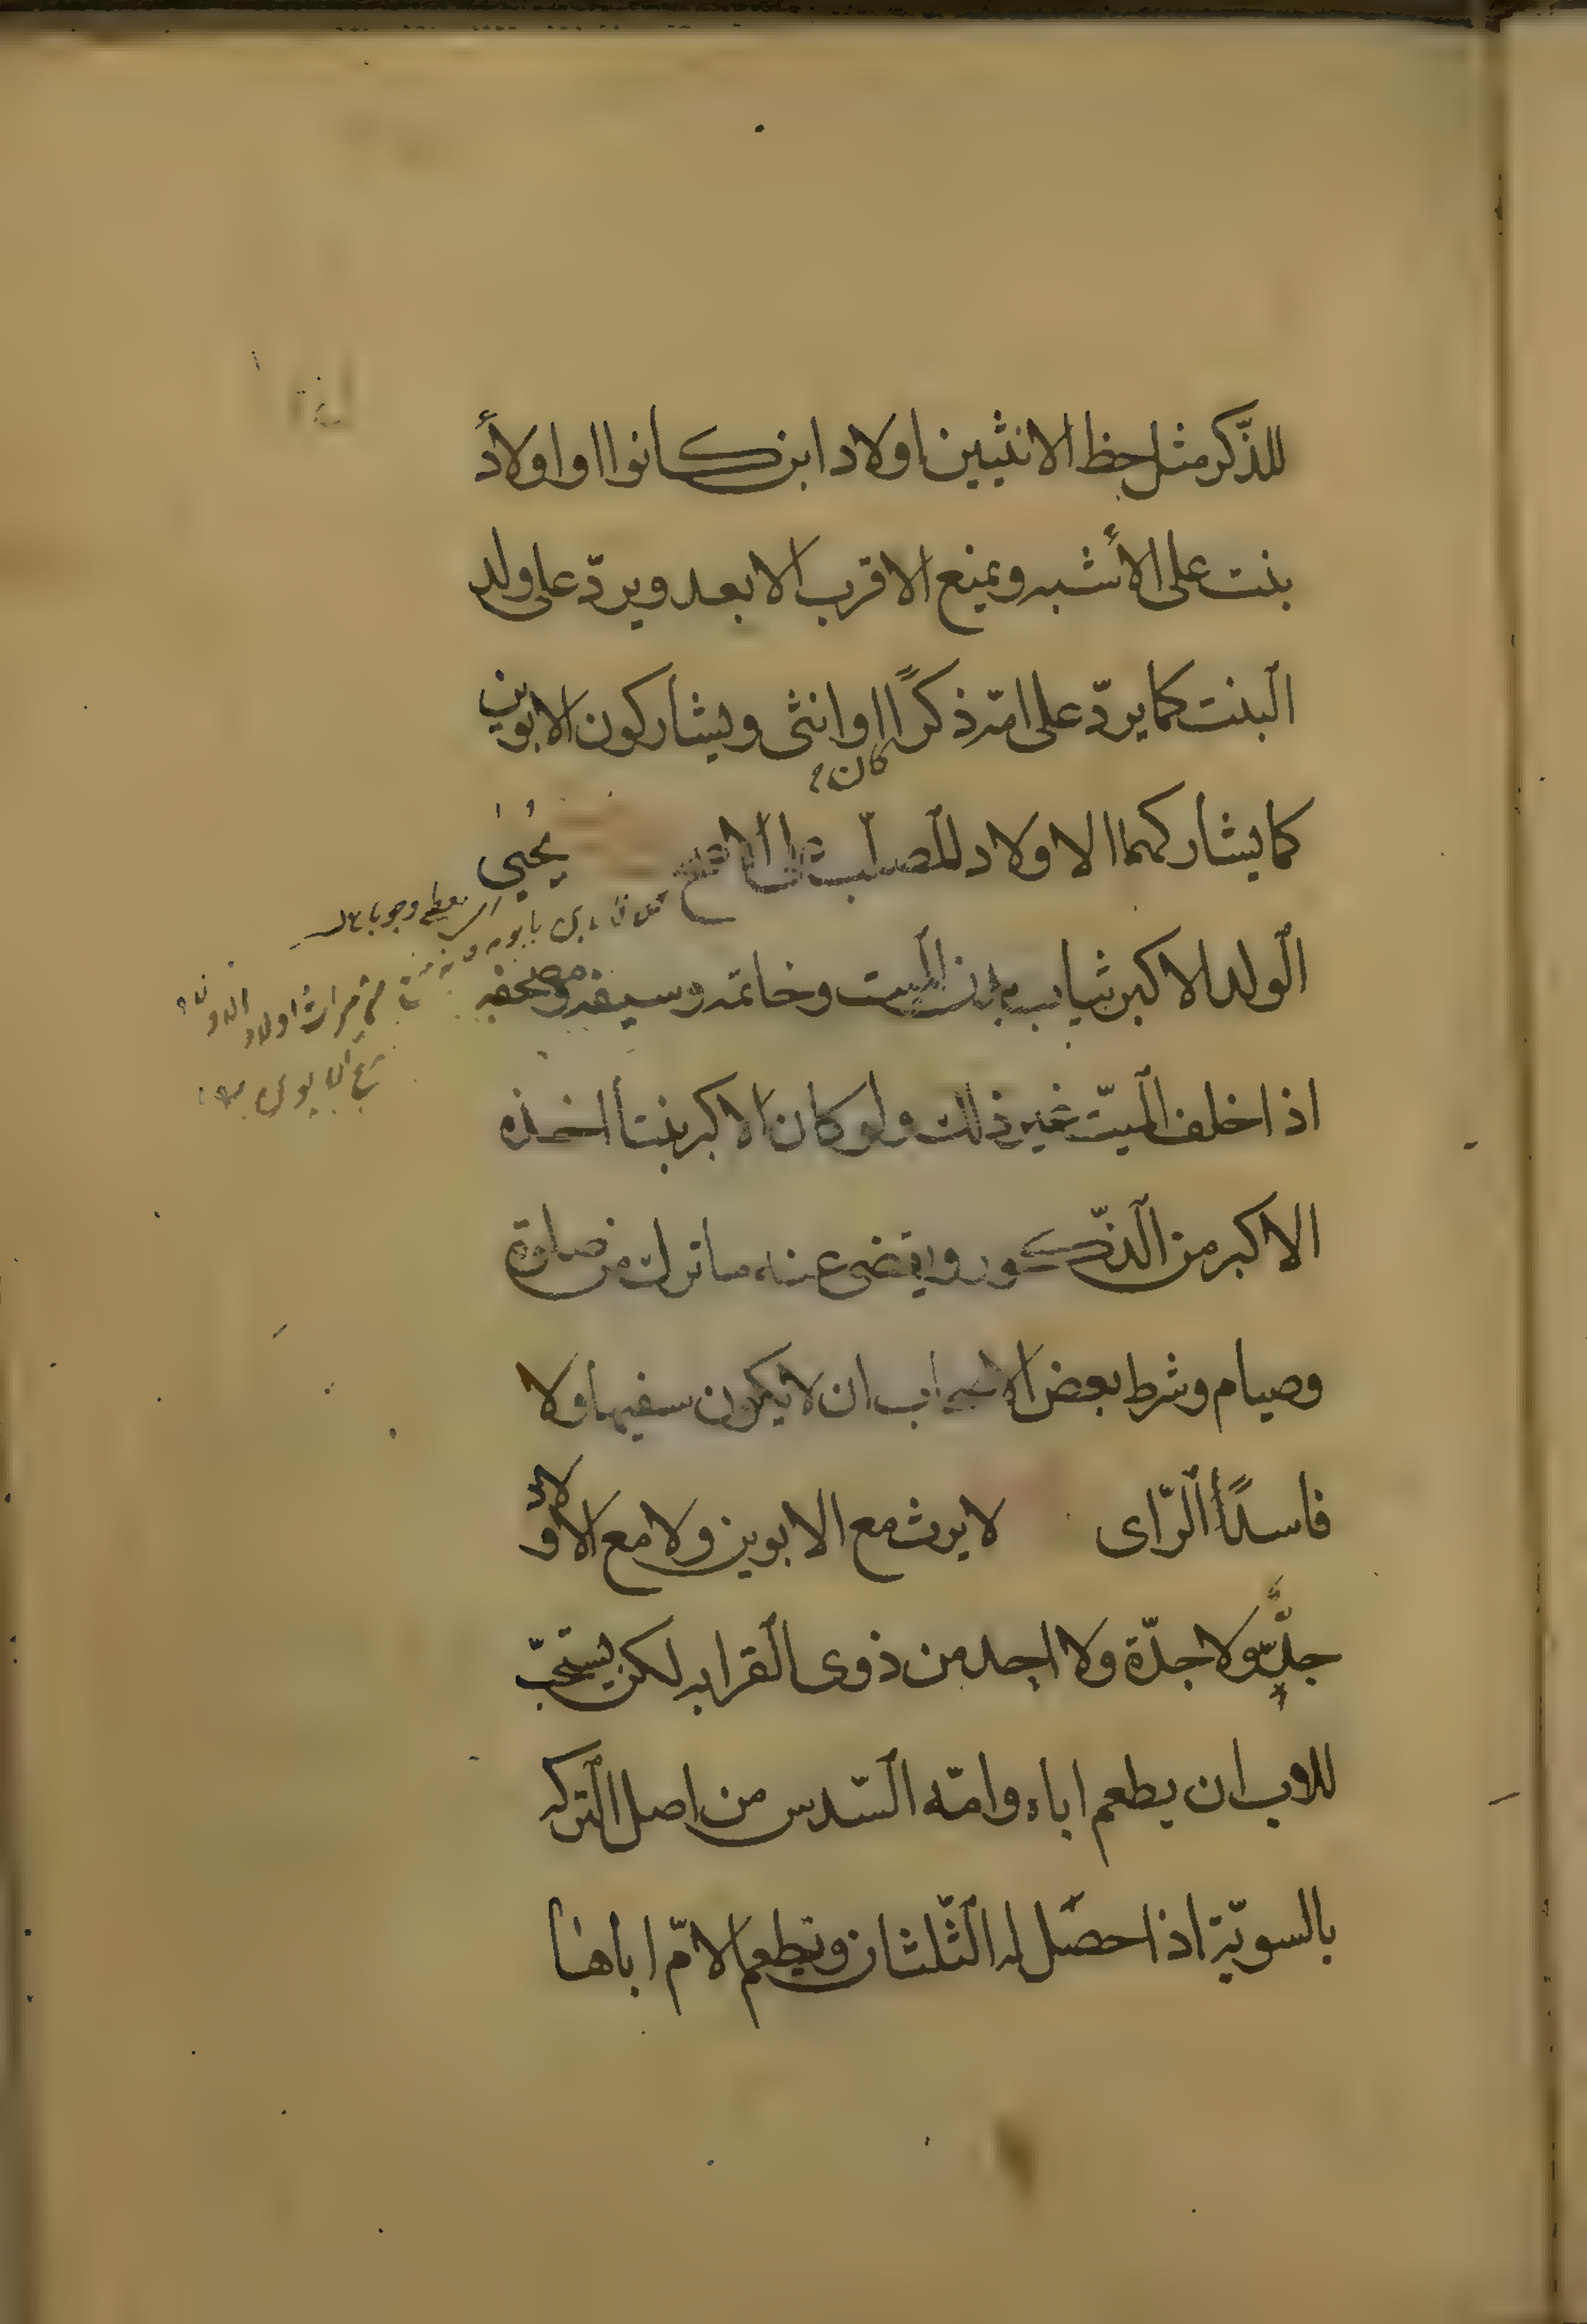 للذّكر مثل حظ الانثيين اولاد ابن كانوا او اولاد
بنت على الأشبه ويمنع الاقرب الابعد ويردّ على ولد
البنت كما يردّ على امّه ذكرًا او انثى ويشاركون الابوين
كان
كما يشاركهما الاولاد للصلب على الاصح يُحبى
الولد الاكبر بثياب بدن الميت وخاتمه وسيفه ومصحفه
اذا خلف الميّت غير ذلك ولو كان الاكبر بنتا اخذه
الاكبر من الذّكور ويقضى عنه ما ترك من صلوة
وصيام وشرط بعض الاصحاب ان لا يكون سفيها ولا
فاسدًا الرّاى لا يرث مع الابوين ولا مع الاولاد
جدّ ولا جدّة ولا احد من ذوى القرابه لكن يستحبّ
للاب ان يطعم اباه وامّه السّدس من اصل التركه
بالسويّة اذا حصّل له الثّلثان وتطعم الامّ اباها
يعطى وجوبا
ميراث اولاد الاولاد
مع الابوين